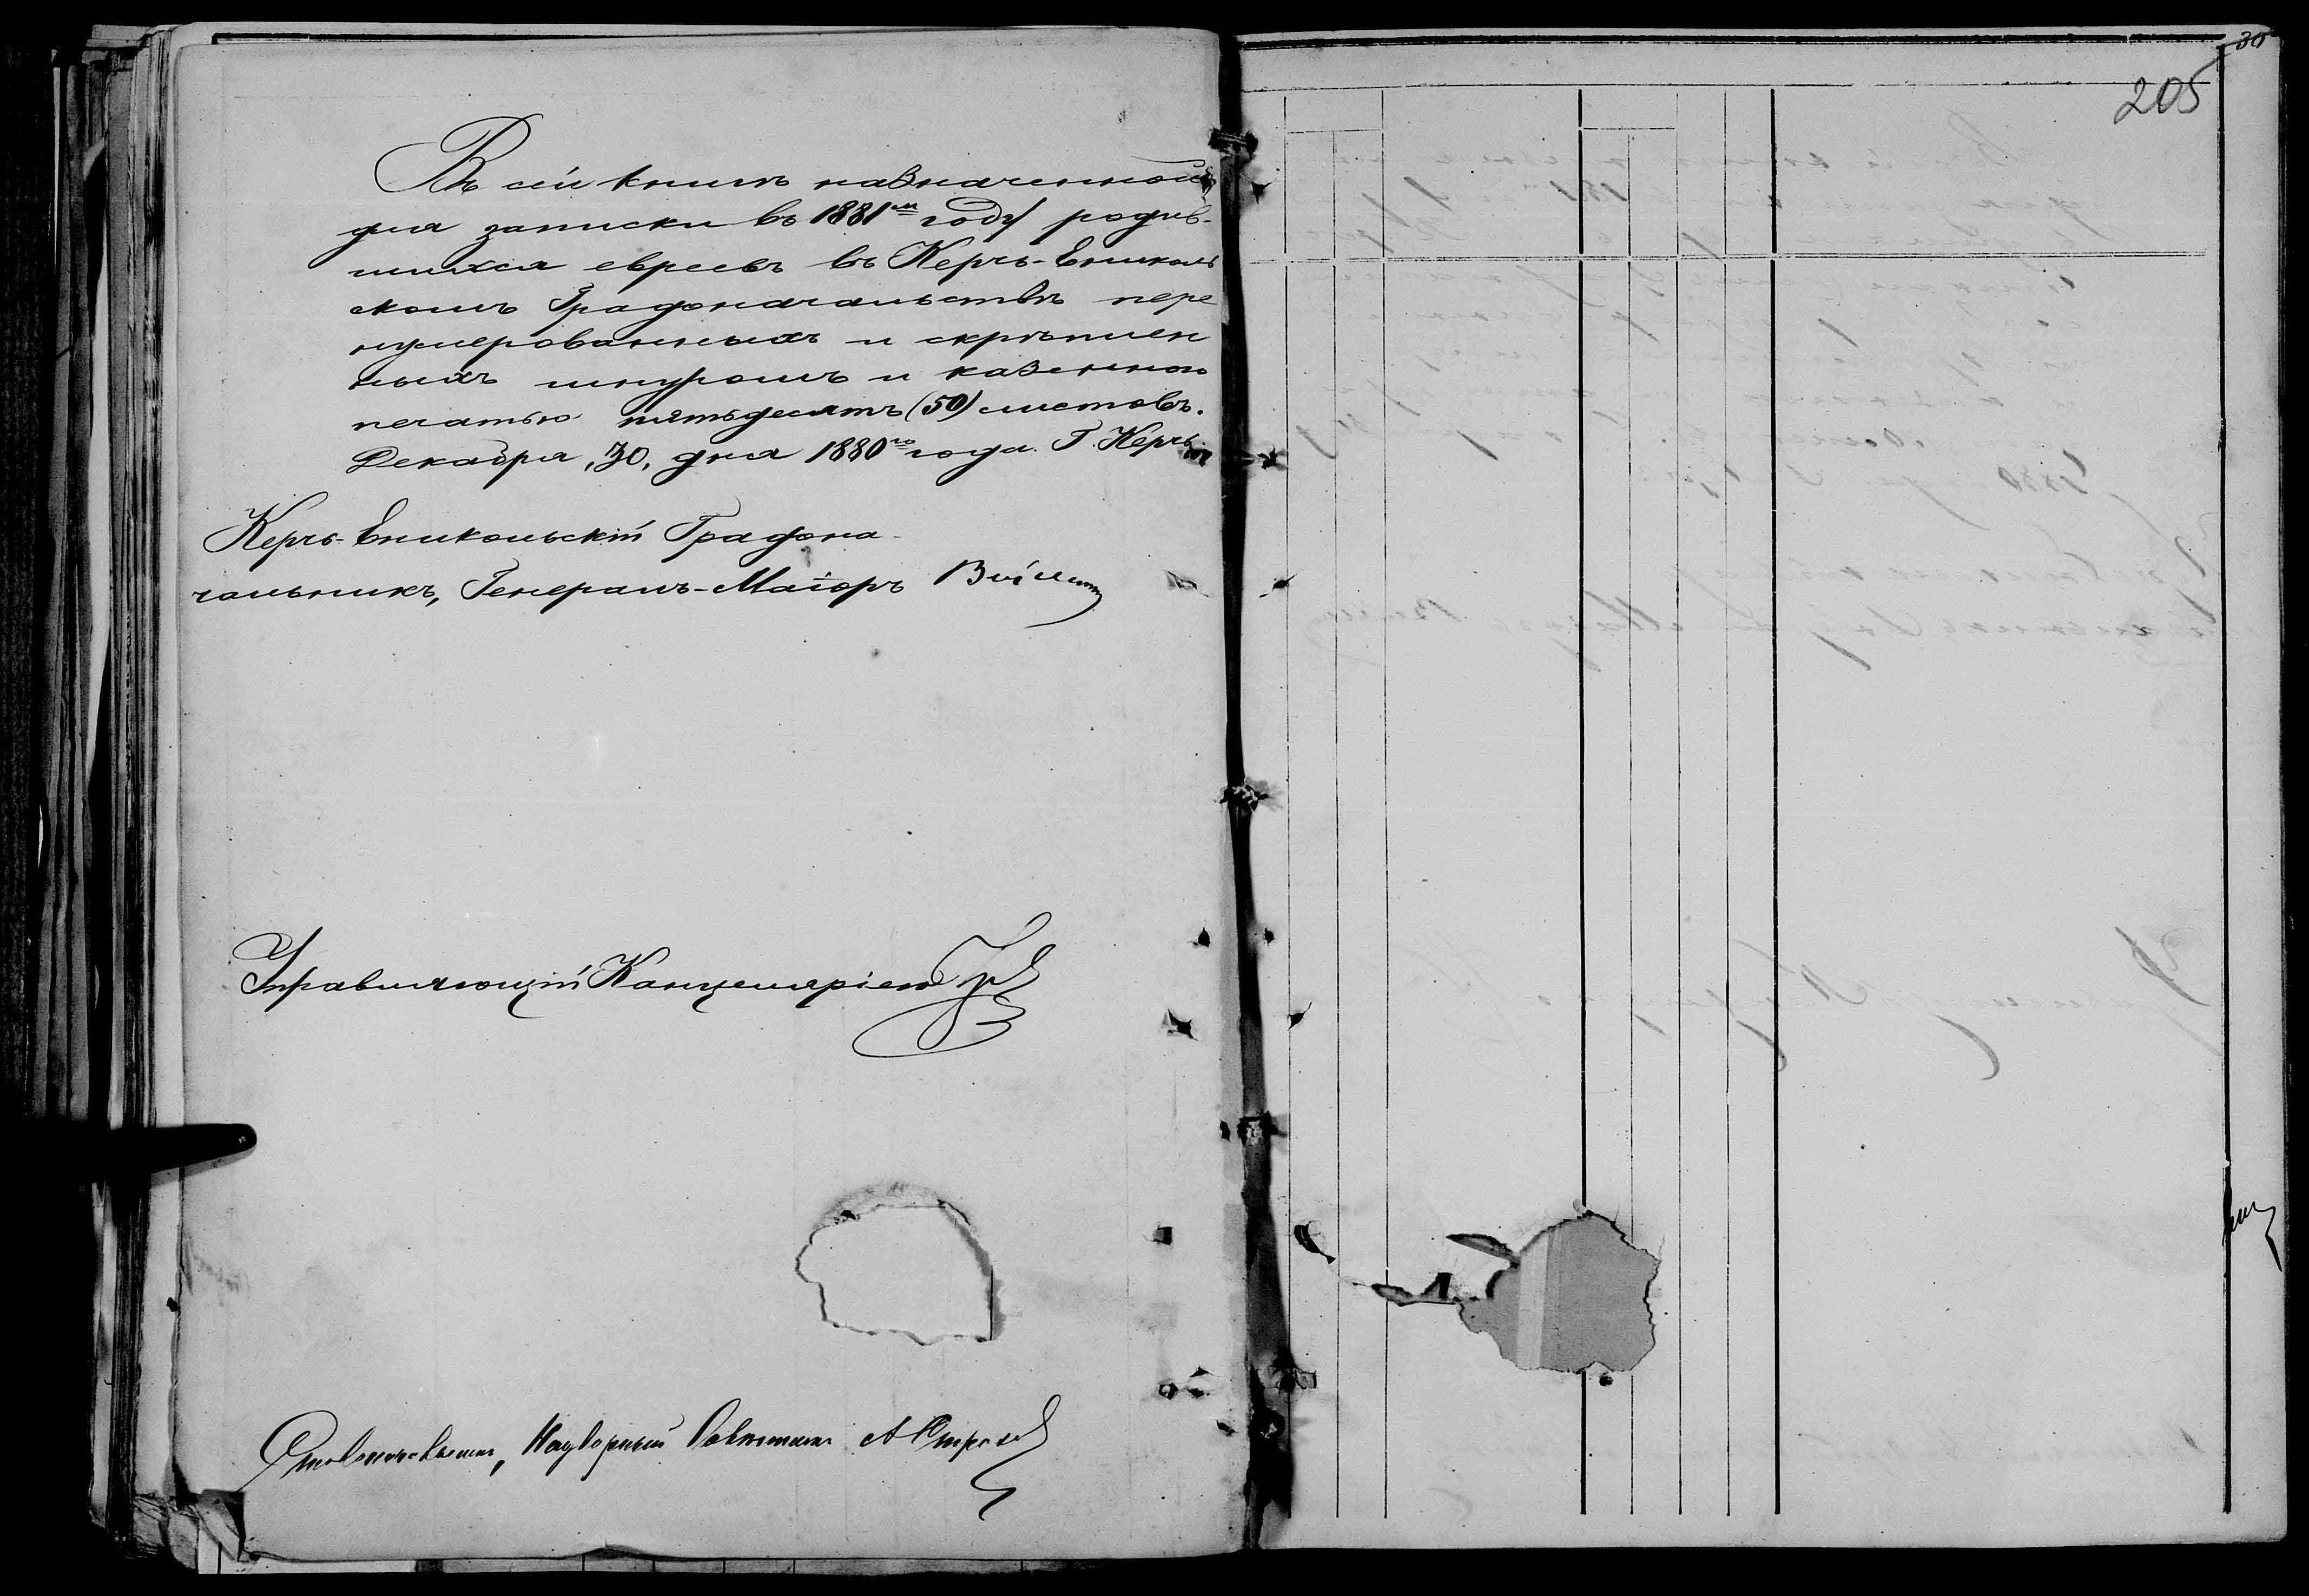 Въ сей книгѣ назначенной
для записки въ 1881ᵐ году родив-
шихся евреевъ въ Керчь-Ениколь
скомъ Градоначальствѣ пере
нумерованныхъ и скрѣплен
ныхъ шнуромъ и казенною
печатью пятьдесятъ (50) листовъ.
Декабря, 30, дня 1880го года. Г. Керчь.
Керчь-Еникольскій Градона-
чальникъ, Генералъ-Маіоръ
Управляющій Канцеляріею
Столоначальникъ, Надворный Совѣтникъ А
205